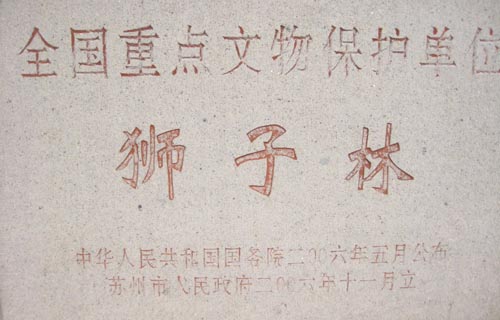 全国重点文物保护单位
狮子林
中华人民共和国国务院二〇〇六年五月公布
苏州市人民政府二〇〇六年十一月立